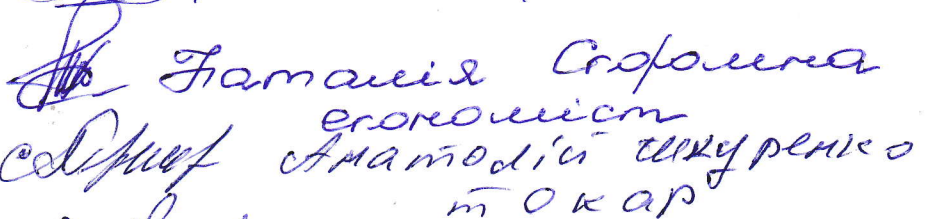 Наталія
економіст
Анатолій Шкуренко
токар